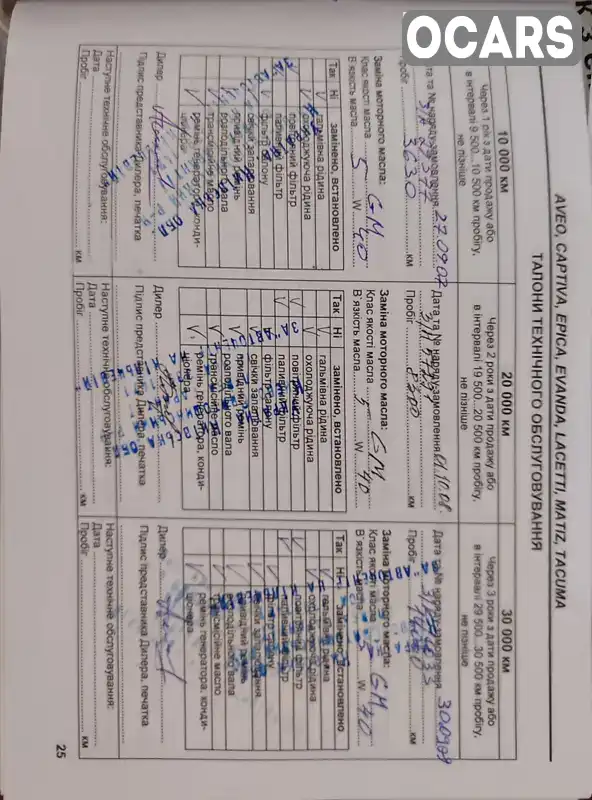 OCARS
AVEO, CAPTIVA, EPICA, EVANDA, LACETTI, MATIZ, TACUMA
ТАЛОНИ ТЕХНІЧНОГО ОБСЛУГОВУВАННЯ
10 000 км
Через 1 рік з дати продажу або
в інтервалі 9 500...10 500 км пробігу,
не пізніше
та та № наряду-замовлення 27.09.07
пробіг 3630
Заміна моторного масла: GM
Клас якості масла
В`язкість масла 5 W 40
Так Ні замінено, встановлено
гальмівна рідина
охолоджуюча рідина
повітряний фільтр
паливний фільтр
фільтр салону
свічки запалювання
привідний ремінь
розподільного вала
трансмісійне масло
ремінь генератора, конди-
ціонера
Дилер
Підпис представника Дилера, печатка
Наступне технічне обслуговування:
Дата
Пробіг км
20 000 км
Через 2 роки з дати продажу або
в інтервалі 19 500...20 500 км пробігу,
не пізніше
Дата та № наряду-замовлення 01.10.08.
Пробіг 8300
Заміна моторного масла: GM
Клас якості масла
В`язкість масла 5 W 40
Так Ні замінено, встановлено
гальмівна рідина
охолоджуюча рідина
повітряний фільтр
паливний фільтр
фільтр салону
свічки запалювання
привідний ремінь
розподільного вала
трансмісійне масло
ремінь генератора, конди-
ціонера
Дилер
Підпис представника Дилера, печатка
Наступне технічне обслуговування:
Дата
Пробіг км
30 000 км
Через 3 роки з дати продажу або
в інтервалі 29 500...30 500 км пробігу,
не пізніше
Дата та № наряду-замовлення 30.09.09
Пробіг
Заміна моторного масла: GM
Клас якості масла
В`язкість масла 5 W 40
Так Ні замінено, встановлено
гальмівна рідина
охолоджуюча рідина
повітряний фільтр
паливний фільтр
фільтр салону
свічки запалювання
привідний ремінь
розподільного вала
трансмісійне масло
ремінь генератора, конди-
ціонера
Дилер
Підпис представника Дилера, печатка
Наступне технічне обслуговування:
Дата
Пробіг км
25